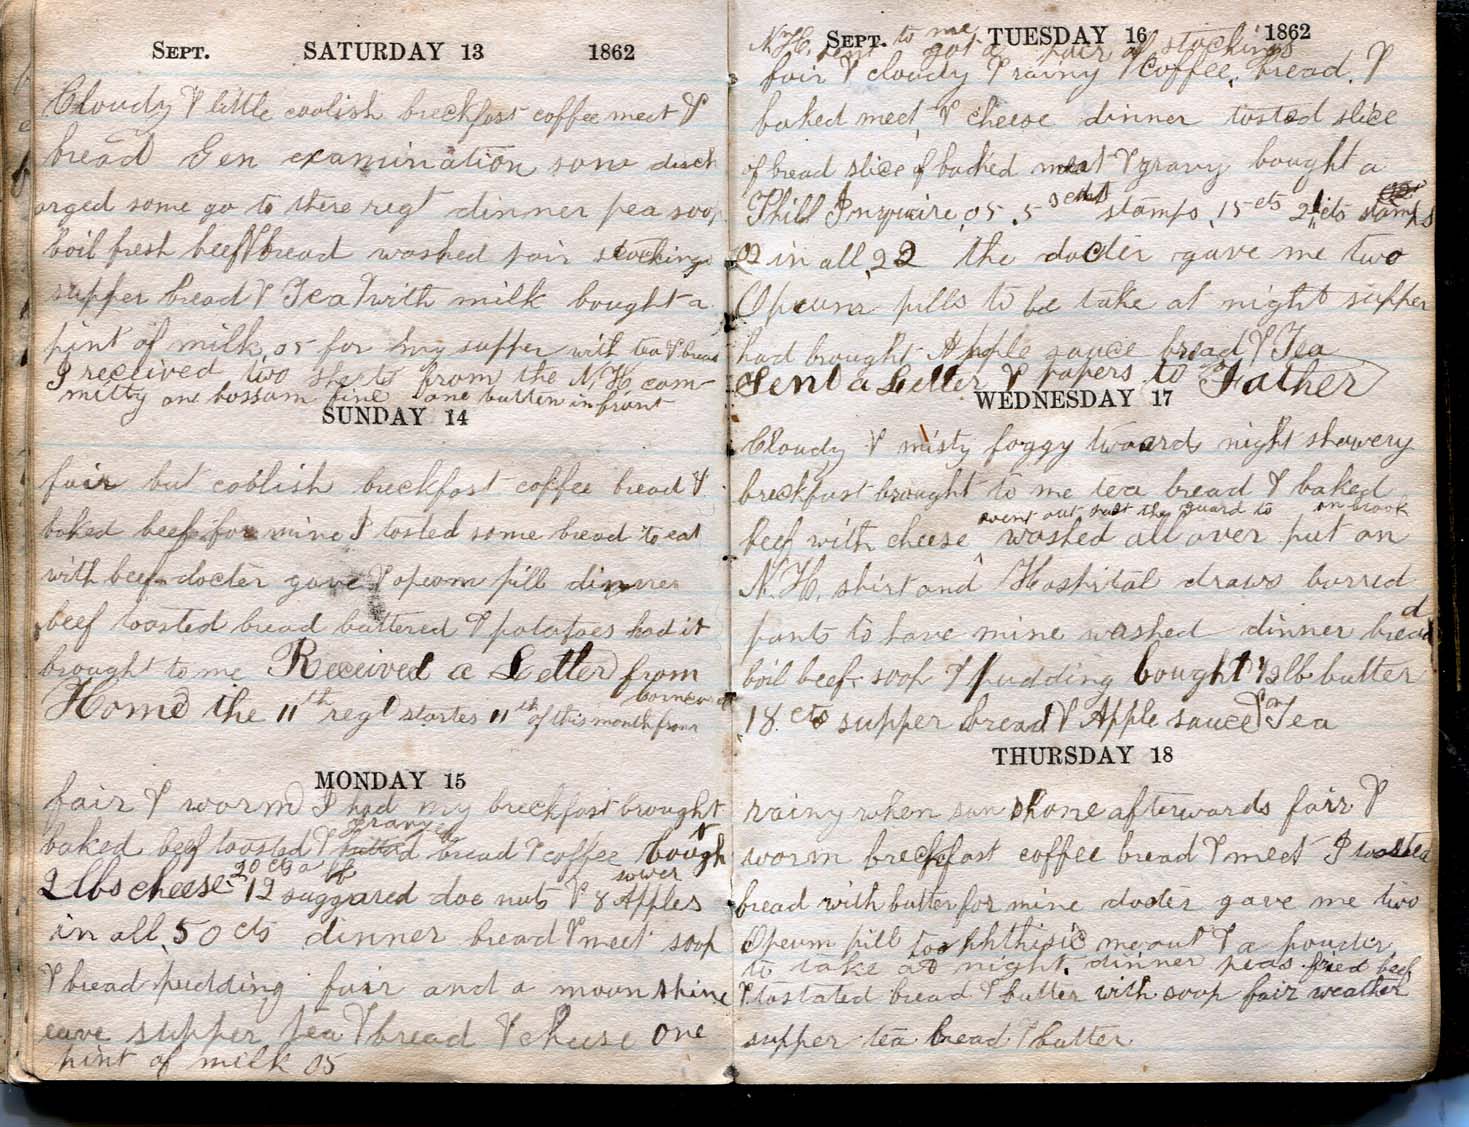 SEPT. SATURDAY 13 1862
Cloudy & little coolish breckfast coffee meet &
bread Gen examination some disch
arged some go to there regt dinner pea soop
boil fresh beef & bread washed pair stockings
supper bread & Tea with milk bought a
pint of milk, 05 for my supper with tea & bread
I received two sheets from the N.H. com-
mitty one bossom fine one button in front
SUNDAY 14
fair but coolish breckfast coffee bread &
baked beef for mine I tosted some bread to eat
with beef docter gave opeom pill dinner
beef toosted bread buttered & potatoes had it
brought to me Received a Letter from
Home the 11th regt startes 11th of this month from
Concord
MONDAY 15
fair & worm I had my breckfast brought
baked beef toosted & bread & coffee bough
gravyed
2 lbs cheese 20 cts a lb 12 suggared doe nuts & 8 sower Apples
in all, 50 cts dinner bread & meet soop
& bread pudding fair and a moon shine
eave supper tea & bread & cheese one
pint of milk 05
N.H. to me got a pair of stockings
SEPT. TUESDAY 16 1862
fair & cloudy & rainy & coffee, bread, &
baked meet, & cheese dinner tosted slice
of bread slice of backed meat & gravy bought a
Phill Inquire, 05, 5 3 cts stamps, 15 cts 2 1 cts stamps
02 in all, 22 the docter gave me two
Opeum pills to be take at night supper
had brought Apple sauce bread & Tea
Sent a Letter & papers to Father
WEDNESDAY 17
Cloudy & misty foggy twoards night showery
breckfast brought to me tea bread & baked
went out past the guard to an brook
beef with cheese washed all over put on
N.H. shirt and Hospital draws borred
pants to have mine washed dinner bread
boil beef soop & pudding bought 1/2 lb butter
18 cts supper bread & Apple sauce & Tea
THURSDAY 18
rainy when sun shone afterwards fair &
worm breckfast coffee bread & meet I toosted
bread with butter for mine docter gave me two
Opeum pill too phthisic me out & a pouder
to take at night. dinner peas fried beef
& tostated bread & butter with soop fair weather
supper tea bread & butter